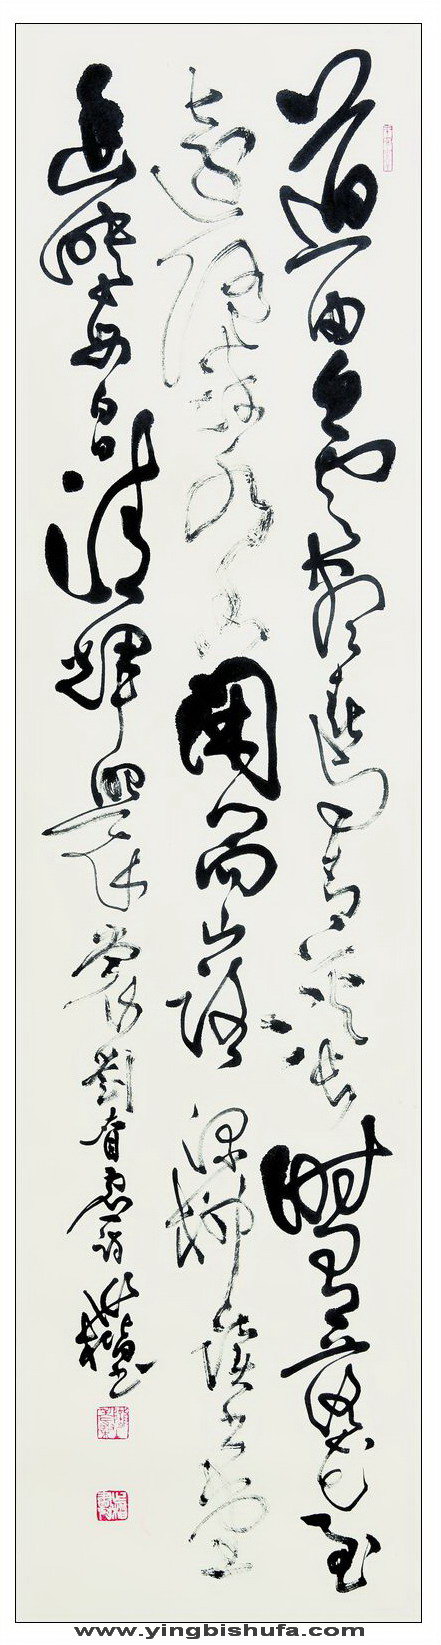 道由白雲盡春與青溪長時有落花至
遠隨流水香閑門向山路深柳讀書堂
幽映每白日清輝照衣裳劉昚虛詩書
www.yingbishufa.com